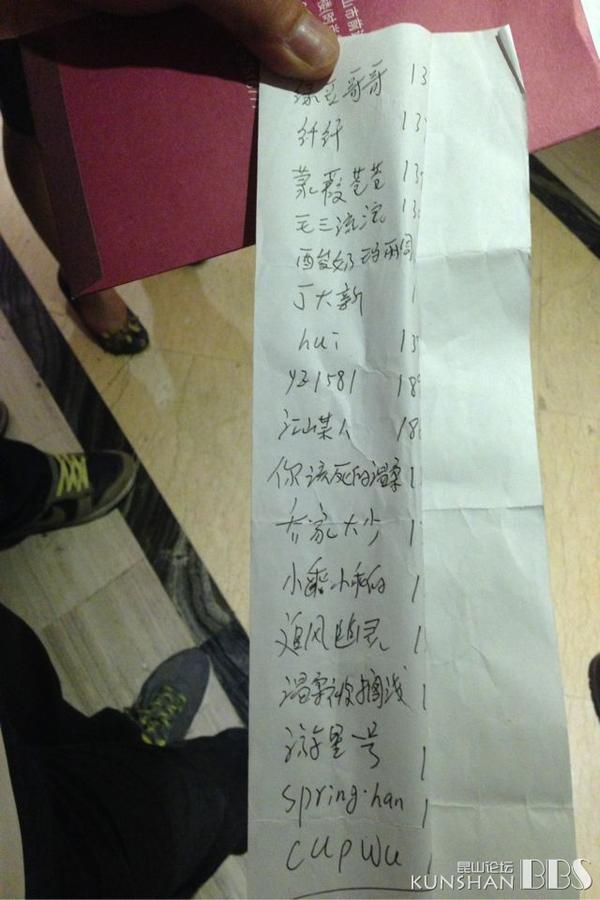 绿豆哥哥 13
纤纤 13
蒹葭苍苍 13
毛三流浣 13
酸奶
丁大新 1
hui 13
yz1581 18
江山某人 18
你该死的温柔 1
乔家大少 1
小乖小乖的 1
追风随灵 1
温柔被搁浅 1
游星一号 1
spring.han 1
cupwu 1
昆山论坛
KUNSHAN BBS